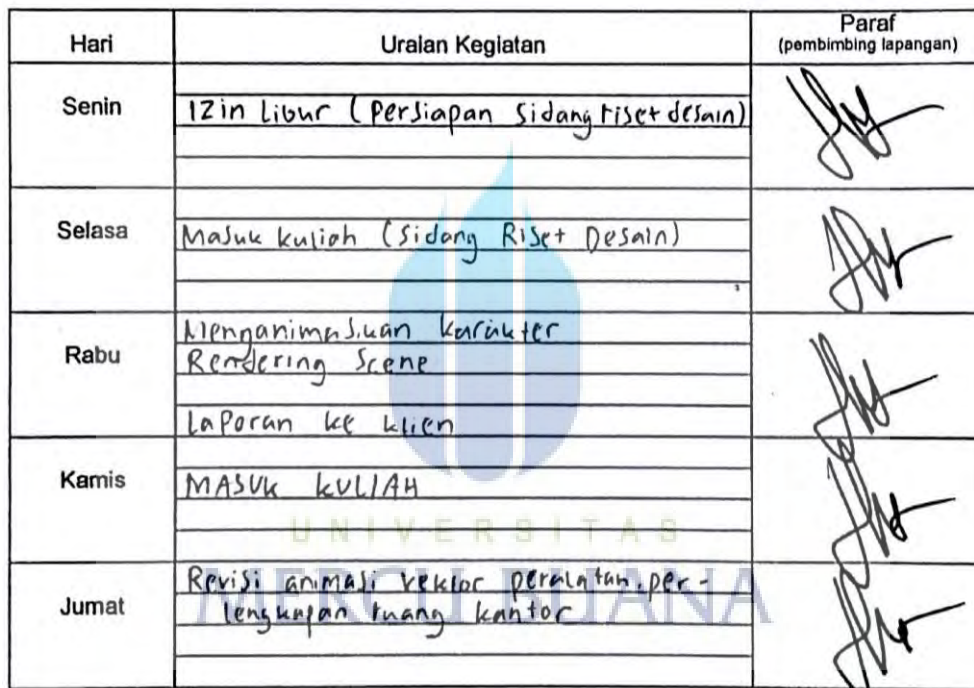 Hari Uraian Kegiatan Paraf
(pembimbing lapangan)
Senin
Izin Libur (Persiapan sidang riset desain)
Selasa
Masuk kuliah (Sidang Riset Desain)
Menganimasikan karakter
Rabu
Rendering Scene
Laporan ke klien
Kamis
MASUK KULIAH
UNIVERSITAS
Revisi animasi vektor peralatan, per-
Jumat
lengkapan ruang kantor
MERCU BUANA